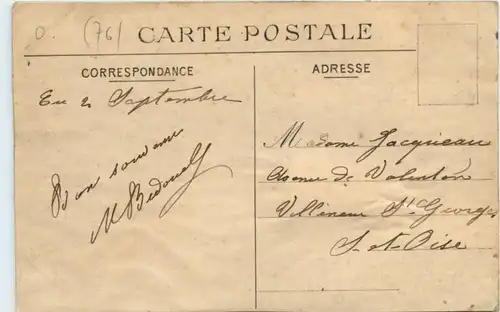 0. (76)
CARTE POSTALE
CORRESPONDANCE
ADRESSE
Eu 2 Septembre
Bon souvenir
M Bedouelf
Madame Jacqueau
Avenue de Valenton
Villeneuve St Georges
S-et-Oise